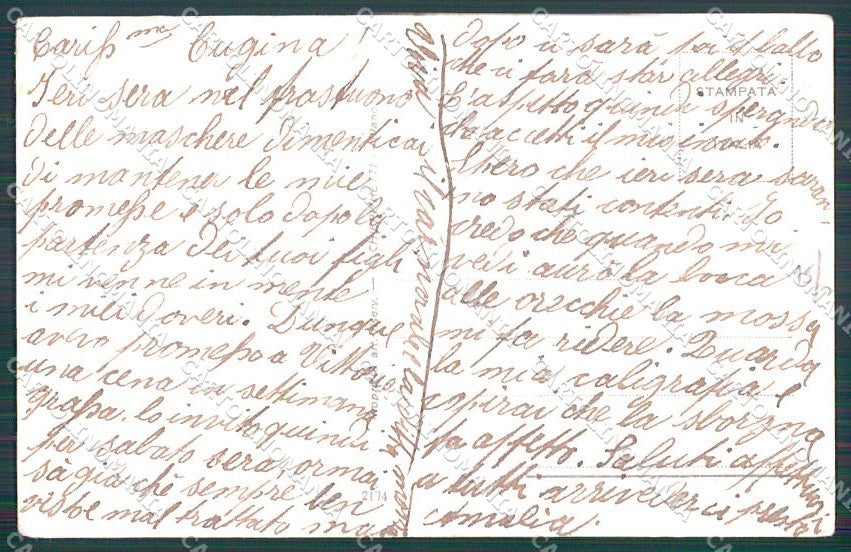 Cariss ma Cugina!
Ieri sera nel frastuono
delle maschere dimenticai
di mantener le mie
promesse e solo dopo la
partenza dei tuoi figli
mi venne in mente
i miei doveri. Dunque
avevo promesso a Vittorio
una cena in settimana
grassa. lo invito quindi
per sabato sera ormai
sa già che sempre ben
visto e mal trattato ma
dopo ci sarà poi il ballo
che ci farà star allegri.
L'aspetto quindi sperando
da accetti il mio invito.
Spero che ieri sera saran-
no stati contenti. Io
credo che quando mi
vedi aurò la bocca
alle orecchie la mossa
mi fa ridere. Guarda
la mia caligrafia e
capirai che la sborgna
fa affetto. Saluti affettuosi
a tutti arrivederci presto
Amalia.
STAMPATA
IN
2174
CARTOLINOMANIA